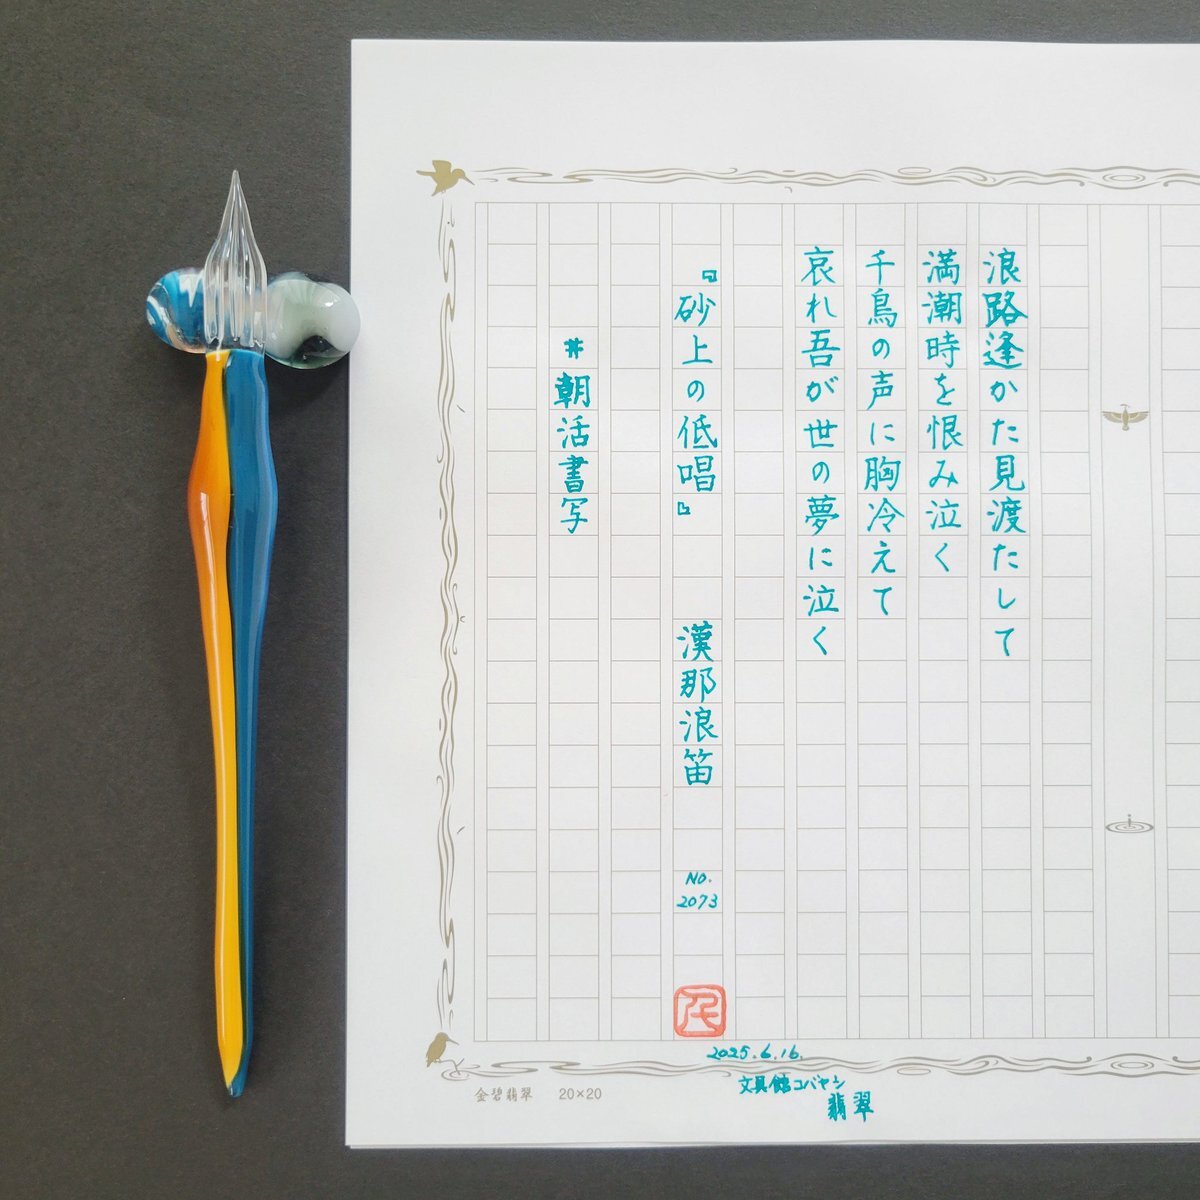 浪路逢かた見渡たして
満潮時を恨み泣く
千鳥の声に胸冷えて
哀れ吾が世の夢に泣く
『砂上の低唱』 漢那浪笛
No.
2073
#朝活書写
2025.6.16.
文具館コバヤシ
翡翠
金碧翡翠 20×20